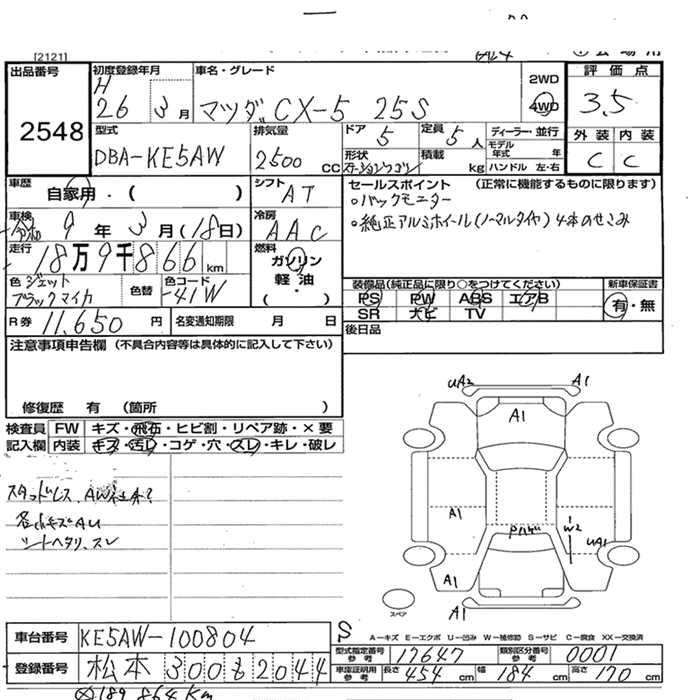 [2121]
出品番号 初度登録年月 車名・グレード 2WD 評価点
2548 H 26 3月 マツダ CX-5 25S 4WD 3.5
型式 排気量 ドア 定員 ディーラー・並行 外装 内装
DBA-KE5AW 2500CC 5 5人 モデル年式 年 C C
形状 積載 kg ハンドル 左・右
車歴 自家用・( ) シフト AT セールスポイント (正常に機能するものに限ります)
・バックモニター
車検 9年 3月(18日) 冷房 AAC ・純正アルミホイール(ノーマルタイヤ)4本のせこみ
走行 18万9千866km 燃料 ガソリン 軽油 ( ・ )
色 ジェットブラックマイカ 色替 色コード 41W 装備品(純正品に限り○をつけてください) 新車保証書
PS PW ABS エアB 有・無
SR ナビ TV
R券 11,650円 名変通知期限 月 日 後日品
注意事項申告欄(不具合内容等は具体的に記入して下さい)
修復歴 有(箇所 )
検査員 FW キズ・飛石・ヒビ割・リペア跡・×要
記入欄 内装 キズ・汚レ・コゲ・穴・スレ・キレ・破レ
UA2 A1
A1
スタッドレス、AW
A1 W2
各小キズAU UA1
シートヘタリ、スレ
A1
A1
スペア
S A－キズ E－エクボ U－凹み W－補修跡 S－サビ C－腐食 XX－交換済
車台番号 KE5AW-100804
型式指定番号 参考 17647 類別区分番号 参考 0001
登録番号 松本 300 る 2044
車庫証明用 参考 長さ 454cm 幅 184cm 高さ 170cm
189,864Km